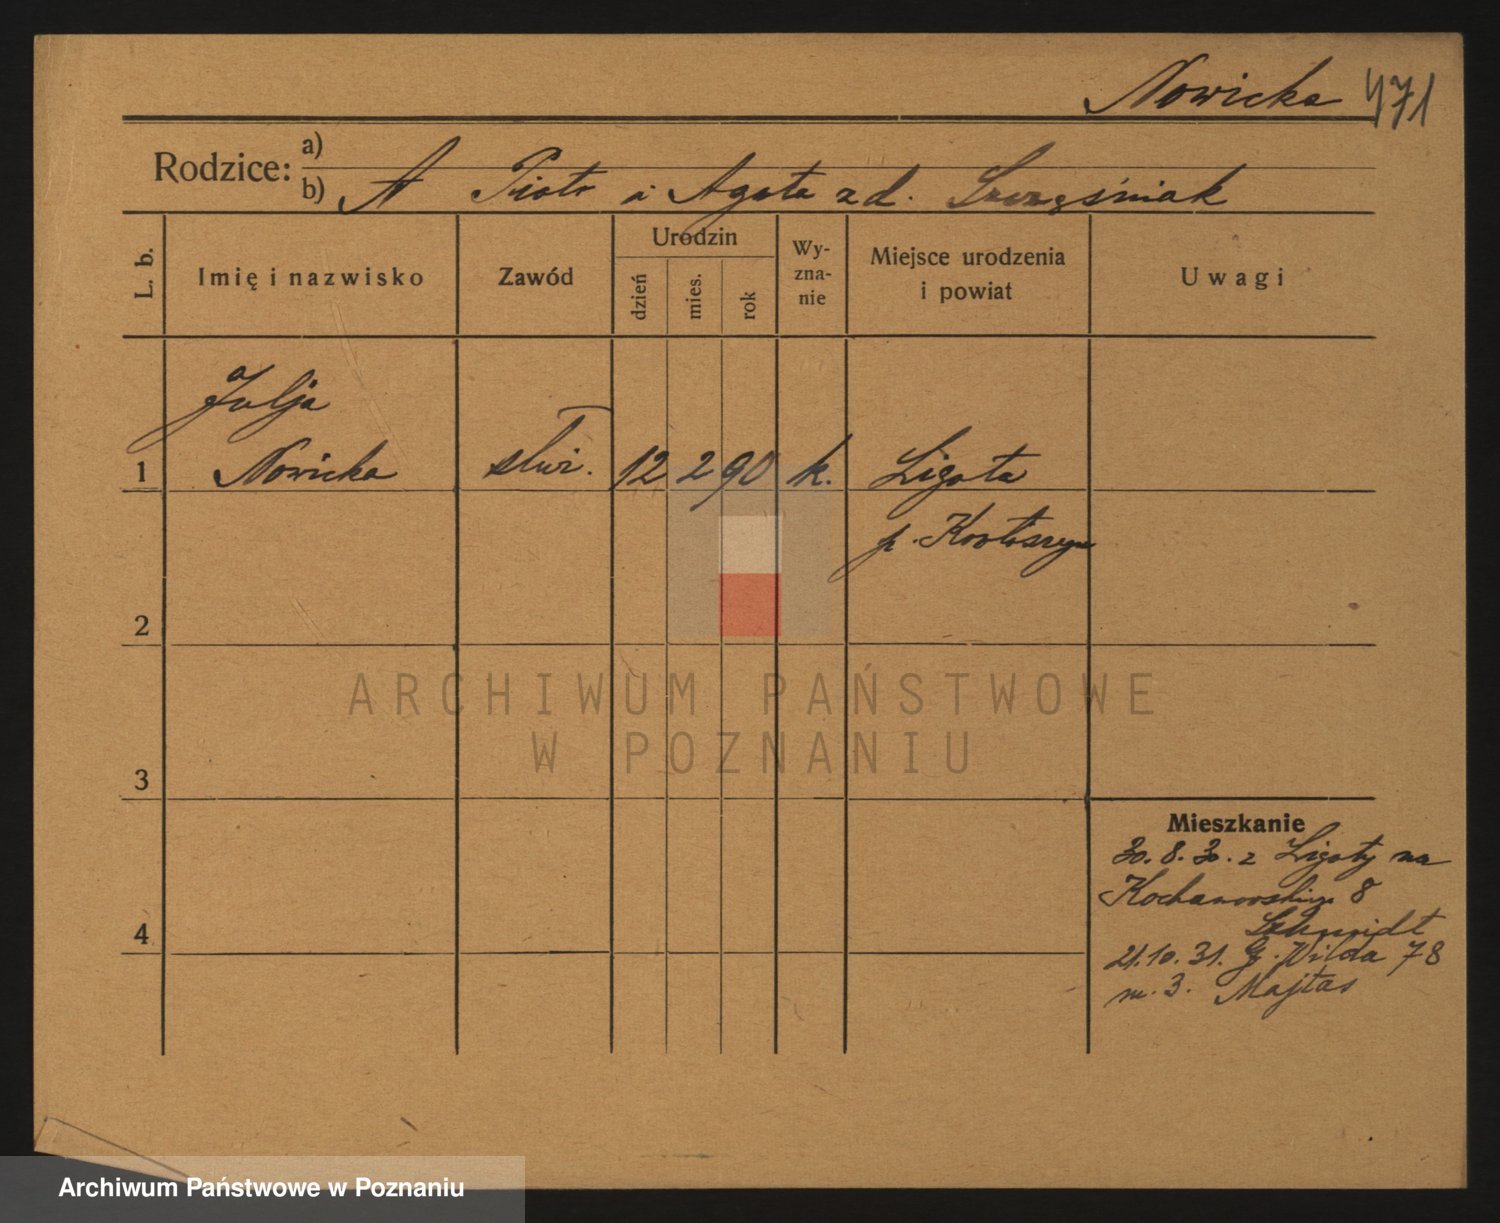 Nowicka 471
Rodzice: a)
b) A Piotr i Agata zd. Szczęśniak
L. b. Imię i nazwisko Zawód Urodzin dzień mies. rok Wy-zna-nie Miejsce urodzenia i powiat Uwagi
Julja
1 Nowicka służ. 12 2 90 k. Ligota
p. Krotoszyn
2
3
Mieszkanie
30. 8. 30. z Ligoty na
Kochanowskiego 8
4 Schmidt
21. 10. 31. G. Wilda 78
m. 3. Majtas
ARCHIWUM PAŃSTWOWE
W POZNANIU
Archiwum Państwowe w Poznaniu